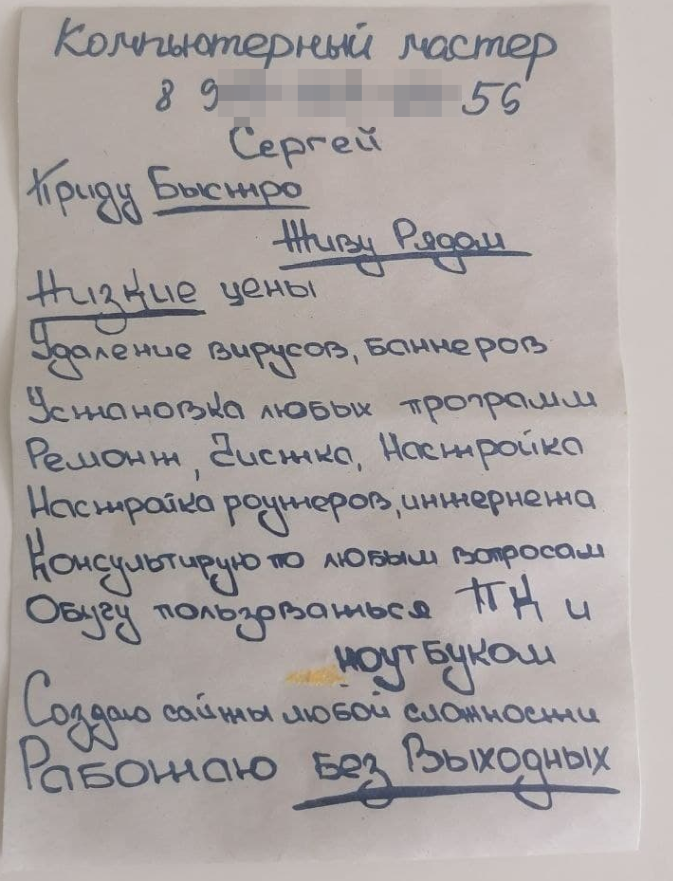 Компьютерный мастер
8 9 56
Сергей
Приду Быстро
Живу Рядом
Низкие цены
Удаление вирусов, баннеров
Установка любых программ
Ремонт, Чистка, Настройка
Настройка роутеров, интернета
Консультирую по любым вопросам
Обучу пользоваться ПК и
ноутбуком
Создаю сайты любой сложности
Работаю Без Выходных